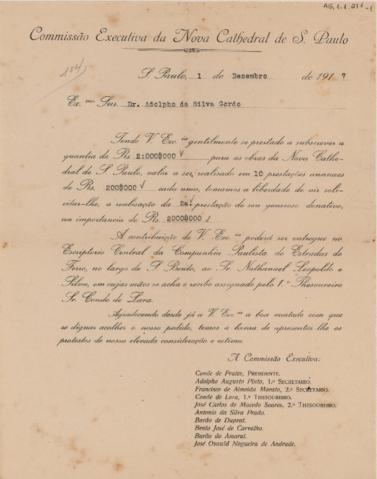 Commissão Executiva da Nova Cathedral de S. Paulo
S. Paulo, 1 de Dezembro de 1917
Ex.mo Snr. Dr. Adolpho da Silva Gordo
Tendo V. Exc.ia gentilmente se prestado a subscrever a
quantia de Rs 2:000$000 para as obras da Nova Cathe-
dral de S. Paulo, valor a ser realisado em 10 prestações annuaes
de Rs. 200$000 cada uma, tomamos a liberdade de vir soli-
citar-lhe, a realisação da prestação do seu generoso donativo,
na importancia de Rs. 200$000
A contribuição de V. Exc.ia poderá ser entregue no
Escriptorio Central da Companhia Paulista de Estradas de
Ferro, no largo de S. Bento, ao Sr. Nathanael Leopoldo e
Silva, em cujas mãos se acha o recibo assignado pelo 1.º Thesoureiro
Sr. Conde de Lara.
Agradecendo desde já a V. Exc.ia a boa vontade com que
se dignar acolher o nosso pedido, temos a honra de apresentar-lhe os
protestos de nossa elevada consideração e estima.
A Commissão Executiva:
Conde de Prates, PRESIDENTE.
Adolpho Augusto Pinto, 1.º SECRETARIO.
Francisco de Almeida Morato, 2.º SECRETARIO.
Conde de Lara, 1.º THESOUREIRO.
José Carlos de Macedo Soares, 2.º THESOUREIRO.
Antonio da Silva Prado.
Barão de Duprat.
Bento José de Carvalho.
Barão do Amaral.
José Oswald Nogueira de Andrade.